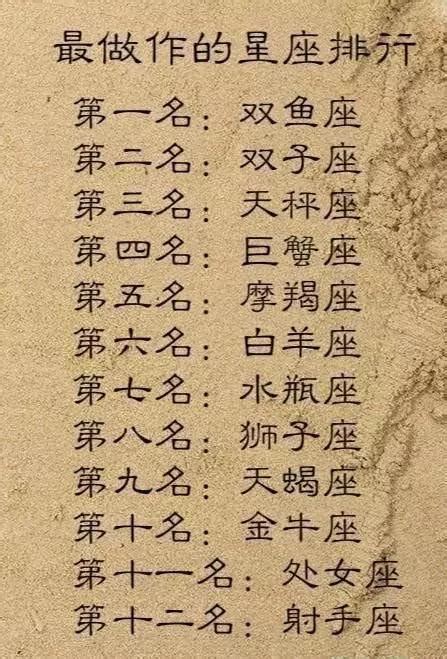 最做作的星座排行
第一名：双鱼座
第二名：双子座
第三名：天秤座
第四名：巨蟹座
第五名：摩羯座
第六名：白羊座
第七名：水瓶座
第八名：狮子座
第九名：天蝎座
第十名：金牛座
第十一名：处女座
第十二名：射手座